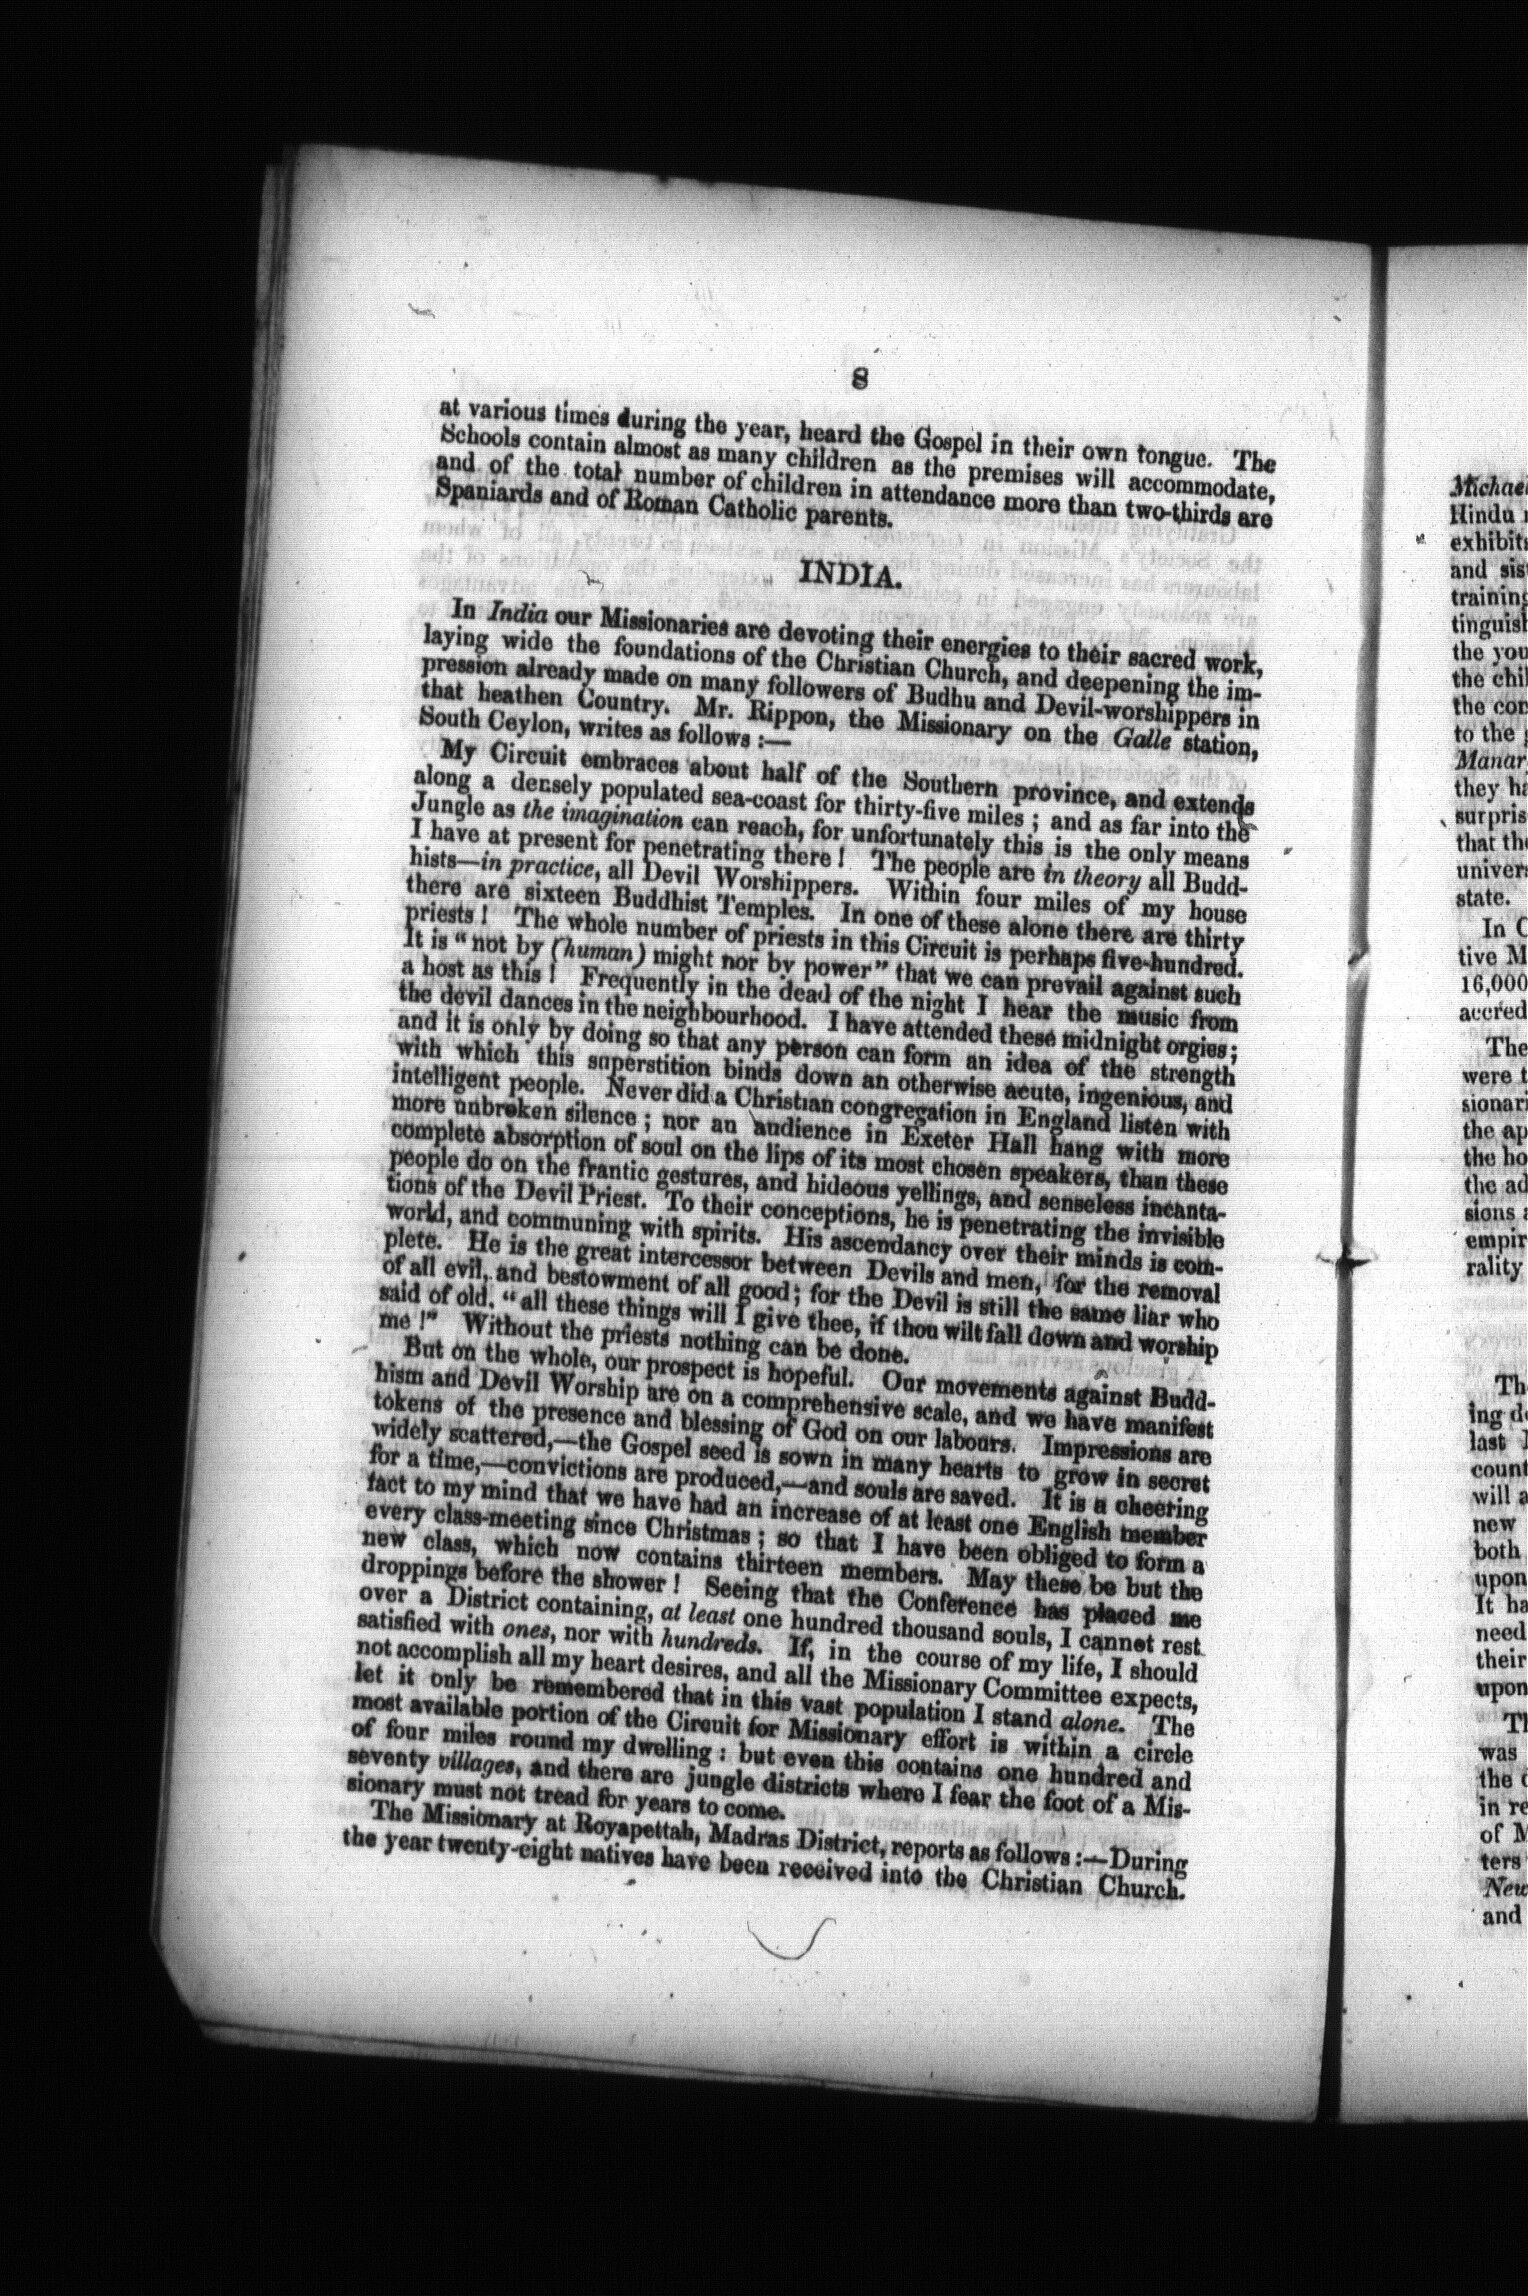 8
at various times during the year, heard the Gospel in their own tongue. The
Schools contain almost as many children as the premises will accommodate,
and of the total number of children in attendance more than two-thirds are
Spaniards and of Roman Catholic parents.
INDIA.
In India our Missionaries are devoting their energies to their sacred work,
laying wide the foundations of the Christian Church, and deepening the im-
pression already made on many followers of Budhu and Devil-worshippers in
that heathen Country. Mr. Rippon, the Missionary on the Galle station,
South Ceylon, writes as follows :—
My Circuit embraces about half of the Southern province, and extends
along a densely populated sea-coast for thirty-five miles ; and as far into the
Jungle as the imagination can reach, for unfortunately this is the only means
I have at present for penetrating there ! The people are in theory all Budd-
hists—in practice, all Devil Worshippers. Within four miles of my house
there are sixteen Buddhist Temples. In one of these alone there are thirty
priests ! The whole number of priests in this Circuit is perhaps five-hundred.
It is “ not by (human) might nor by power” that we can prevail against such
a host as this ! Frequently in the dead of the night I hear the music from
the devil dances in the neighbourhood. I have attended these midnight orgies ;
and it is only by doing so that any person can form an idea of the strength
with which this superstition binds down an otherwise acute, ingenious, and
intelligent people. Never did a Christian congregation in England listen with
more unbroken silence ; nor an audience in Exeter Hall hang with more
complete absorption of soul on the lips of its most chosen speakers, than these
people do on the frantic gestures, and hideous yellings, and senseless incanta-
tions of the Devil Priest. To their conceptions, he is penetrating the invisible
world, and communing with spirits. His ascendancy over their minds is com-
plete. He is the great intercessor between Devils and men, for the removal
of all evil, and bestowment of all good ; for the Devil is still the same liar who
said of old, “ all these things will I give thee, if thou wilt fall down and worship
me !” Without the priests nothing can be done.
But on the whole, our prospect is hopeful. Our movements against Budd-
hism and Devil Worship are on a comprehensive scale, and we have manifest
tokens of the presence and blessing of God on our labours. Impressions are
widely scattered,—the Gospel seed is sown in many hearts to grow in secret
for a time,—convictions are produced,—and souls are saved. It is a cheering
fact to my mind that we have had an increase of at least one English member
every class-meeting since Christmas ; so that I have been obliged to form a
new class, which now contains thirteen members. May these be but the
droppings before the shower ! Seeing that the Conference has placed me
over a District containing, at least one hundred thousand souls, I cannot rest
satisfied with ones, nor with hundreds. If, in the course of my life, I should
not accomplish all my heart desires, and all the Missionary Committee expects,
let it only be remembered that in this vast population I stand alone. The
most available portion of the Circuit for Missionary effort is within a circle
of four miles round my dwelling : but even this contains one hundred and
seventy villages, and there are jungle districts where I fear the foot of a Mis-
sionary must not tread for years to come.
The Missionary at Royapettah, Madras District, reports as follows :—During
the year twenty-eight natives have been received into the Christian Church.
Michael
Hindu
exhibits
and sis
training
tinguish
the you
the chil
the con
to the
Manar
they ha
surpris
that the
univers
state.
In C
tive M
16,000
accred
The
were t
sionari
the ap
the ho
the ad
sions a
empir
rality
Th
ing de
last
count
will a
new
both
upon
It ha
need
their
upon
Th
was
the
in re
of M
ters
New
and